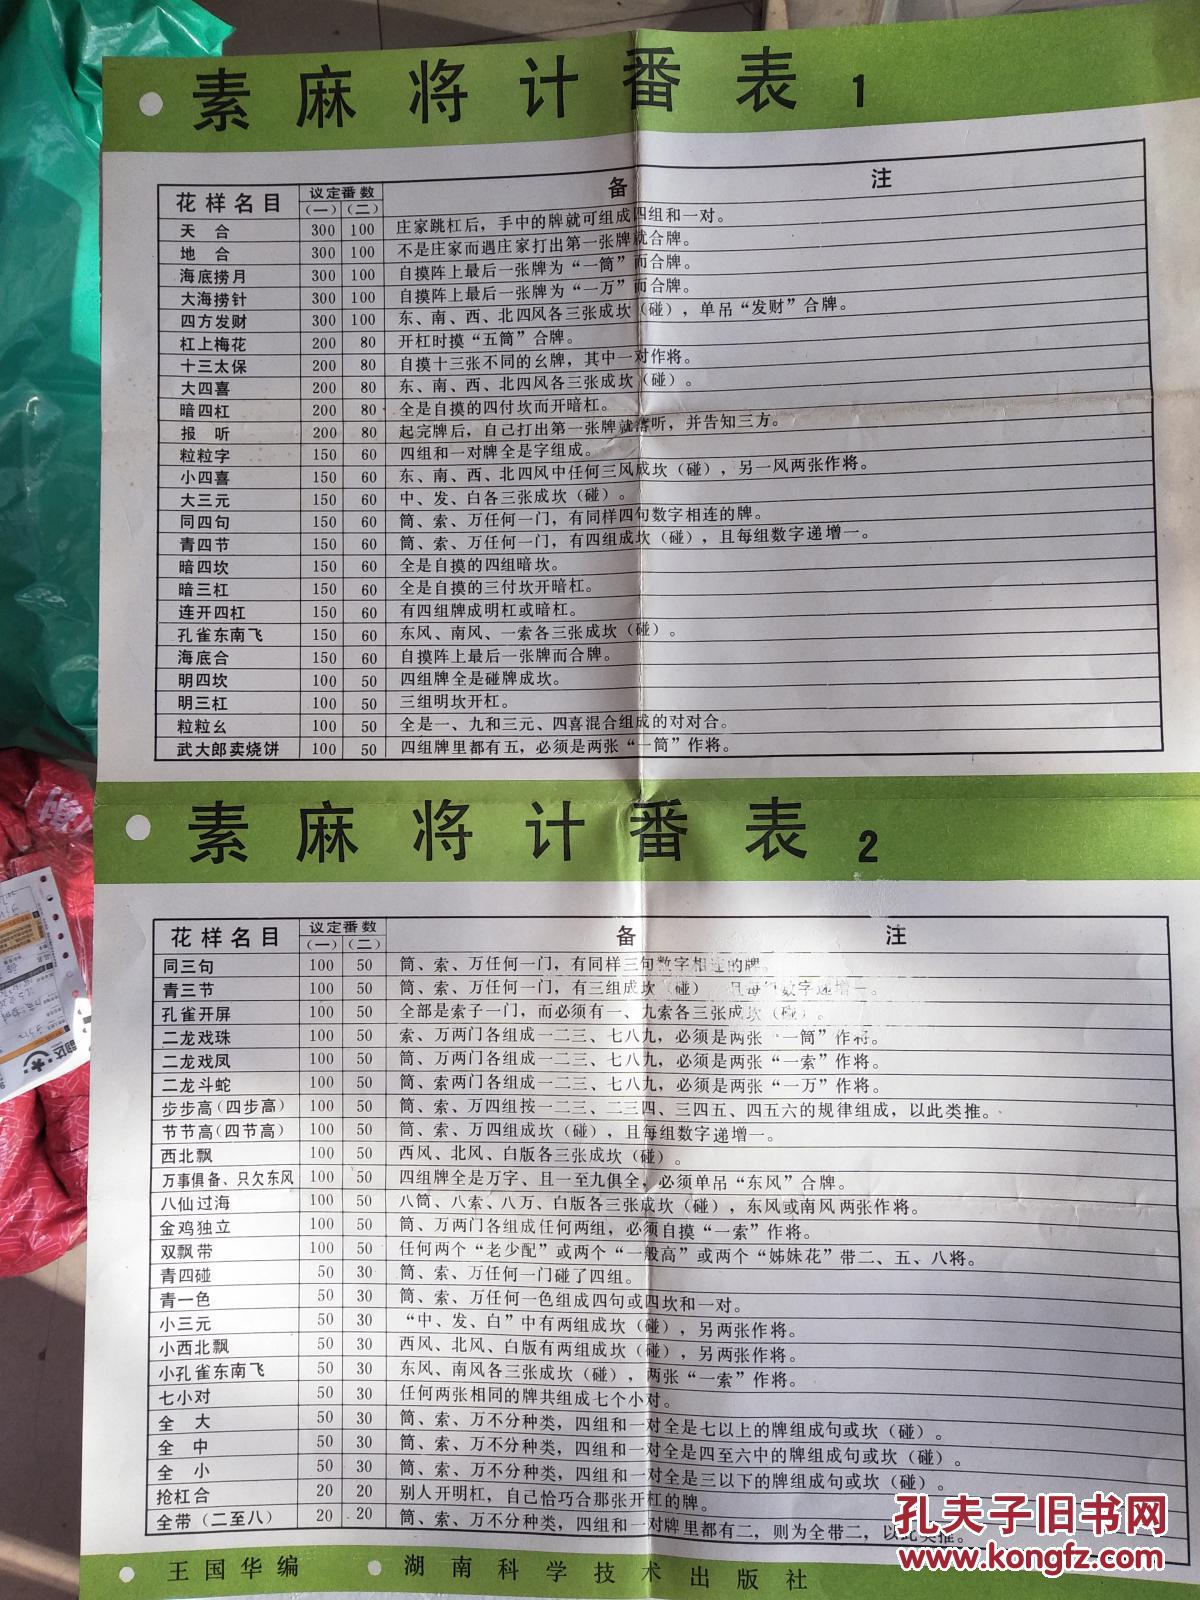 素麻将计番表 1
花样名目 议定番数 备注
(一) (二)
天合 300 100 庄家跳杠后，手中的牌就可组成四组和一对。
地合 300 100 不是庄家而遇庄家打出第一张牌就合牌。
海底捞月 300 100 自摸阵上最后一张牌为“一筒”而合牌。
大海捞针 300 100 自摸阵上最后一张牌为“一万”而合牌。
四方发财 300 100 东、南、西、北四风各三张成坎（碰），单吊“发财”合牌。
杠上梅花 200 80 开杠时摸“五筒”合牌。
十三太保 200 80 自摸十三张不同的幺牌，其中一对作将。
大四喜 200 80 东、南、西、北四风各三张成坎（碰）。
暗四杠 200 80 全是自摸的四付坎而开暗杠。
报听 200 80 起完牌后，自己打出第一张牌就落听，并告知三方。
粒粒字 150 60 四组和一对牌全是字组成。
小四喜 150 60 东、南、西、北四风中任何三风成坎（碰），另一风两张作将。
大三元 150 60 中、发、白各三张成坎（碰）。
同四句 150 60 筒、索、万任何一门，有同样四句数字相连的牌。
青四节 150 60 筒、索、万任何一门，有四组成坎（碰），且每组数字递增一。
暗四坎 150 60 全是自摸的四组暗坎。
暗三杠 150 60 全是自摸的三付坎开暗杠。
连开四杠 150 60 有四组牌成明杠或暗杠。
孔雀东南飞 150 60 东风、南风、一索各三张成坎（碰）。
海底合 150 60 自摸阵上最后一张牌而合牌。
明四坎 100 50 四组牌全是碰牌成坎。
明三杠 100 50 三组明坎开杠。
粒粒幺 100 50 全是一、九和三元、四喜混合组成的对对合。
武大郎卖烧饼 100 50 四组牌里都有五，必须是两张“一筒”作将。
素麻将计番表 2
花样名目 议定番数 备注
(一) (二)
同三句 100 50 筒、索、万任何一门，有同样三句数字相连的牌。
青三节 100 50 筒、索、万任何一门，有三组成坎（碰） 且每组数字递增一。
孔雀开屏 100 50 全部是索子一门，而必须有一、九索各三张成坎（碰）。
二龙戏珠 100 50 索、万两门各组成一二三、七八九，必须是两张“一筒”作将。
二龙戏凤 100 50 筒、万两门各组成一二三、七八九，必须是两张“一索”作将。
二龙斗蛇 100 50 筒、索两门各组成一二三、七八九，必须是两张“一万”作将。
步步高（四步高） 100 50 筒、索、万四组按一二三、二三四、三四五、四五六的规律组成，以此类推。
节节高（四节高） 100 50 筒、索、万四组成坎（碰），且每组数字递增一。
西北飘 100 50 西风、北风、白版各三张成坎（碰）。
万事俱备、只欠东风 100 50 四组牌全是万字、且一至九俱全，必须单吊“东风”合牌。
八仙过海 100 50 八筒、八索、八万、白版各三张成坎（碰），东风或南风两张作将。
金鸡独立 100 50 筒、万两门各组成任何两组，必须自摸“一索”作将。
双飘带 100 50 任何两个“老少配”或两个“一般高”或两个“姊妹花”带二、五、八将。
青四碰 50 30 筒、索、万任何一门碰了四组。
青一色 50 30 筒、索、万任何一色组成四句或四坎和一对。
小三元 50 30 “中、发、白”中有两组成坎（碰），另两张作将。
小西北飘 50 30 西风、北风、白版有两组成坎（碰），另两张作将。
小孔雀东南飞 50 30 东风、南风各三张成坎（碰），两张“一索”作将。
七小对 50 30 任何两张相同的牌共组成七个小对。
全大 50 30 筒、索、万不分种类，四组和一对全是七以上的牌组成句或坎（碰）。
全中 50 30 筒、索、万不分种类，四组和一对全是四至六中的牌组成句或坎（碰）。
全小 50 30 筒、索、万不分种类，四组和一对全是三以下的牌组成句或坎（碰）。
抢杠合 20 20 别人开明杠，自己恰巧合那张开杠的牌。
全带（二至八） 20 20 筒、索、万不分种类，四组和一对牌里都有二，则为全带二，以此类推。
王国华编 湖南科学技术出版社
孔夫子旧书网
www.kongfz.com